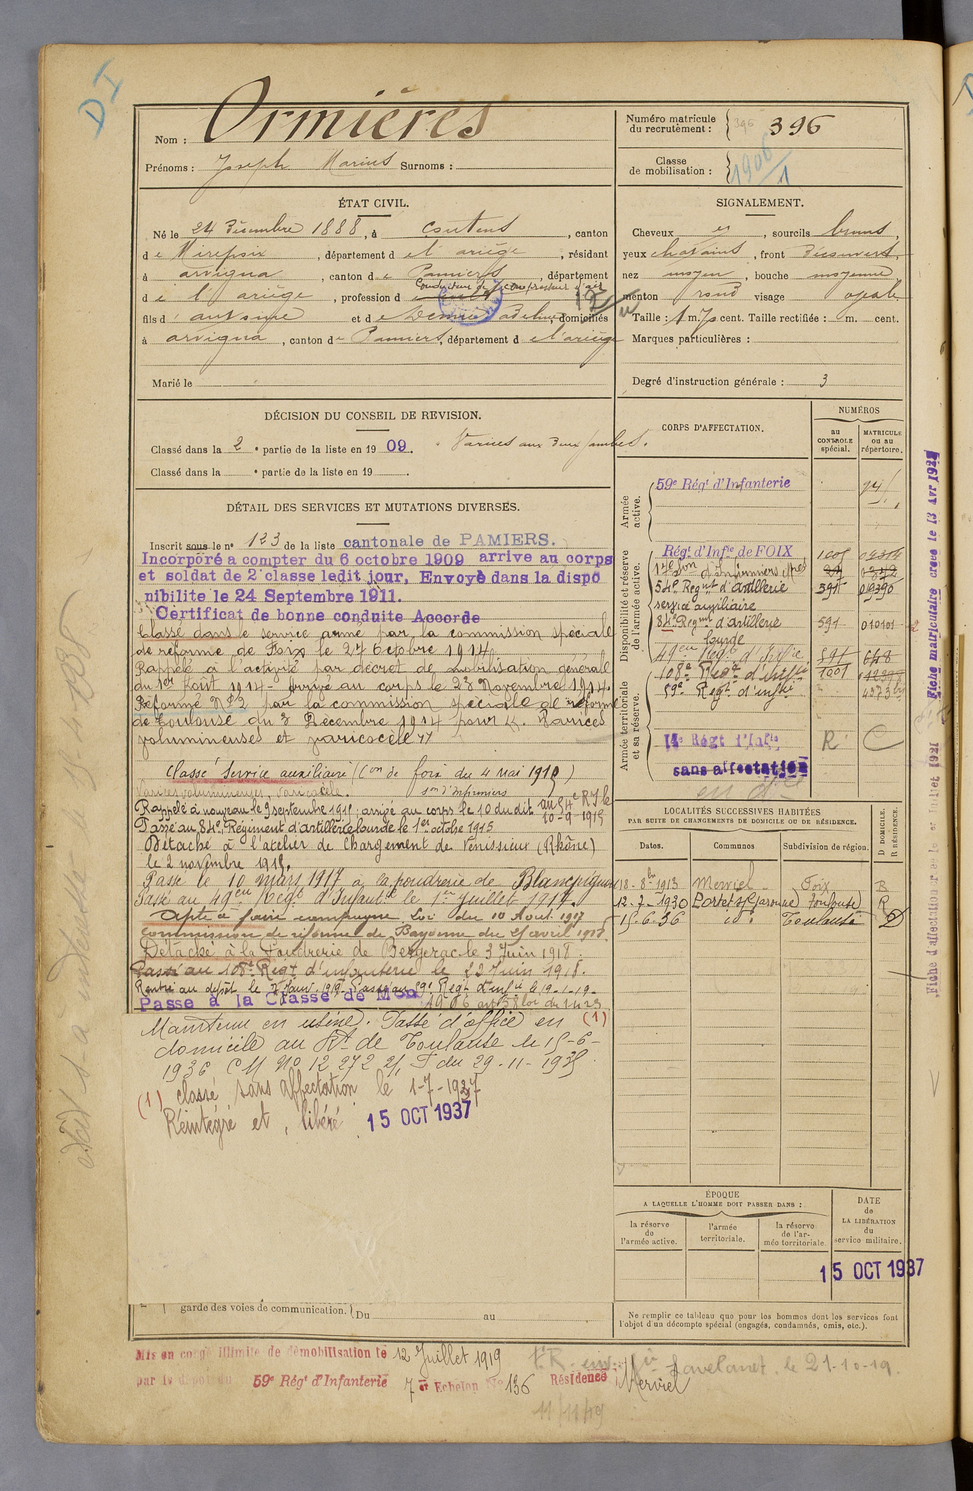 D I
Nom : Ormières
Prénoms : Joseph Marius Surnoms :
Numéro matricule du recrutement : 396 396
Classe de mobilisation : 1906 / 1
ÉTAT CIVIL.
Né le 24 Décembre 1888, à Coutens, canton
de Mirepoix, département de l'ariège, résidant
à arvigna, canton de Pamiers, département
Conducteur de compresseur d'air
de l'ariège, profession d
fils d' antoine et de Adeline, domiciliés
à arvigna, canton de Pamiers, département de l'ariège
Marié le
SIGNALEMENT.
Cheveux et, sourcils bruns,
yeux chatains, front Découvert,
nez moyen, bouche moyenne,
menton rond visage ovale
Taille : 1 m. 70 cent. Taille rectifiée : m. cent.
Marques particulières :
Degré d'instruction générale : 3
DÉCISION DU CONSEIL DE REVISION.
Classé dans la 2e partie de la liste en 1909. Varices aux deux jambes.
Classé dans la e partie de la liste en 19 .
DÉTAIL DES SERVICES ET MUTATIONS DIVERSES.
Inscrit sous le n° 123 de la liste cantonale de PAMIERS.
Incorporé a compter du 6 octobre 1909 arrive au corps
et soldat de 2e classe ledit jour, Envoyé dans la dispo
nibilite le 24 Septembre 1911.
Certificat de bonne conduite Accorde
Classé dans le service armé par la commission spéciale
de réforme de Foix le 27 Octobre 1914
Rappelé à l'activité par décret de mobilisation générale
du 1er Août 1914 - Arrivé au corps le 23 Novembre 1914.
Réformé N°2 par la commission spéciale de réforme
de Toulouse du 8 Décembre 1914 pour Varices
volumineuses et varicocèle
Classé Service auxiliaire (Con de foix du 4 Mai 1915)
Varices volumineuses, varicocèle.
Rappelé à nouveau le 9 septembre 1915 arrivé au corps le 10 dudit
10-9-1915
Passé au 84e Régiment d'artillerie lourde le 1er octobre 1915
Détaché à l'atelier de chargement de Vénissieux (Rhône)
le 2 novembre 1915.
Passé le 10 Mars 1917 à la poudrerie de Blancpignon
Passé au 49eme Regt d'Infanterie le 1er Juillet 1917.
Apte à faire campagne Loi du 10 Aout 1917
Commission de réforme de Bayonne du avril 1918
Détaché à la Poudrerie de Bergerac le 3 Juin 1918.
Passé au 108e Regt d'infanterie le 22 Juin 1918.
Rentré au depôt le Janv. 1919. Passé au 59e Regt d'infie le 19-1-19
Passe à la Classe de Mon 1906 art 58 loi du 1.4.23
Maintenu en usine. Passé d'office en (1)
domicile au Rt de Toulouse le 15-6-
1936 C M No 12.272 du 29-11-1935
(1) classé sans affectation le 1-7-1937
Réintégré et libéré 15 OCT 1937
garde des voies de communication. Du au
CORPS D'AFFECTATION.
NUMÉROS
au CONTRÔLE spécial.
MATRICULE ou au répertoire.
Armée active.
59e Régt d'Infanterie
Disponibilité et réserve de l'armée active.
Régt d'Infie de FOIX
17e Son d'Infirmiers
54e Regnt d'artillerie 591
service auxiliaire
84e Regnt d'artillerie 591 010101
lourde
49eme Regt d'Infie 591 648
108e Regt d'Infie 1001
59e Regt d'infie
Armée territoriale et sa réserve.
14e Régt d'Infie R C
sans affectation
LOCALITÉS SUCCESSIVES HABITÉES
PAR SUITE DE CHANGEMENTS DE DOMICILE OU DE RÉSIDENCE.
Dates. Communes Subdivision de région. D DOMICILE. R RÉSIDENCE.
18-8bre 1913 Merviel Foix R
12-7-1930 Portet s/Garonne Toulouse R
15-6-36 id. Toulouse D
ÉPOQUE
A LAQUELLE L'HOMME DOIT PASSER DANS :
la réserve de l'armée active.
l'armée territoriale.
la réserve de l'armée territoriale.
DATE de LA LIBÉRATION du service militaire.
15 OCT 1937
Ne remplir ce tableau que pour les hommes dont les services font
l'objet d'un décompte spécial (engagés, condamnés, omis, etc.).
Mis en congé illimité de démobilisation le 12 Juillet 1919
par le dépôt du 59e Régt d'Infanterie 7e Echelon N° 136 Résidence Merviel
Lavelanet. le 21-10-19.
11/11/19
Fiche matriculaire créée le 13 Avr 192
Fiche d'affectation créée le Juillet 1921